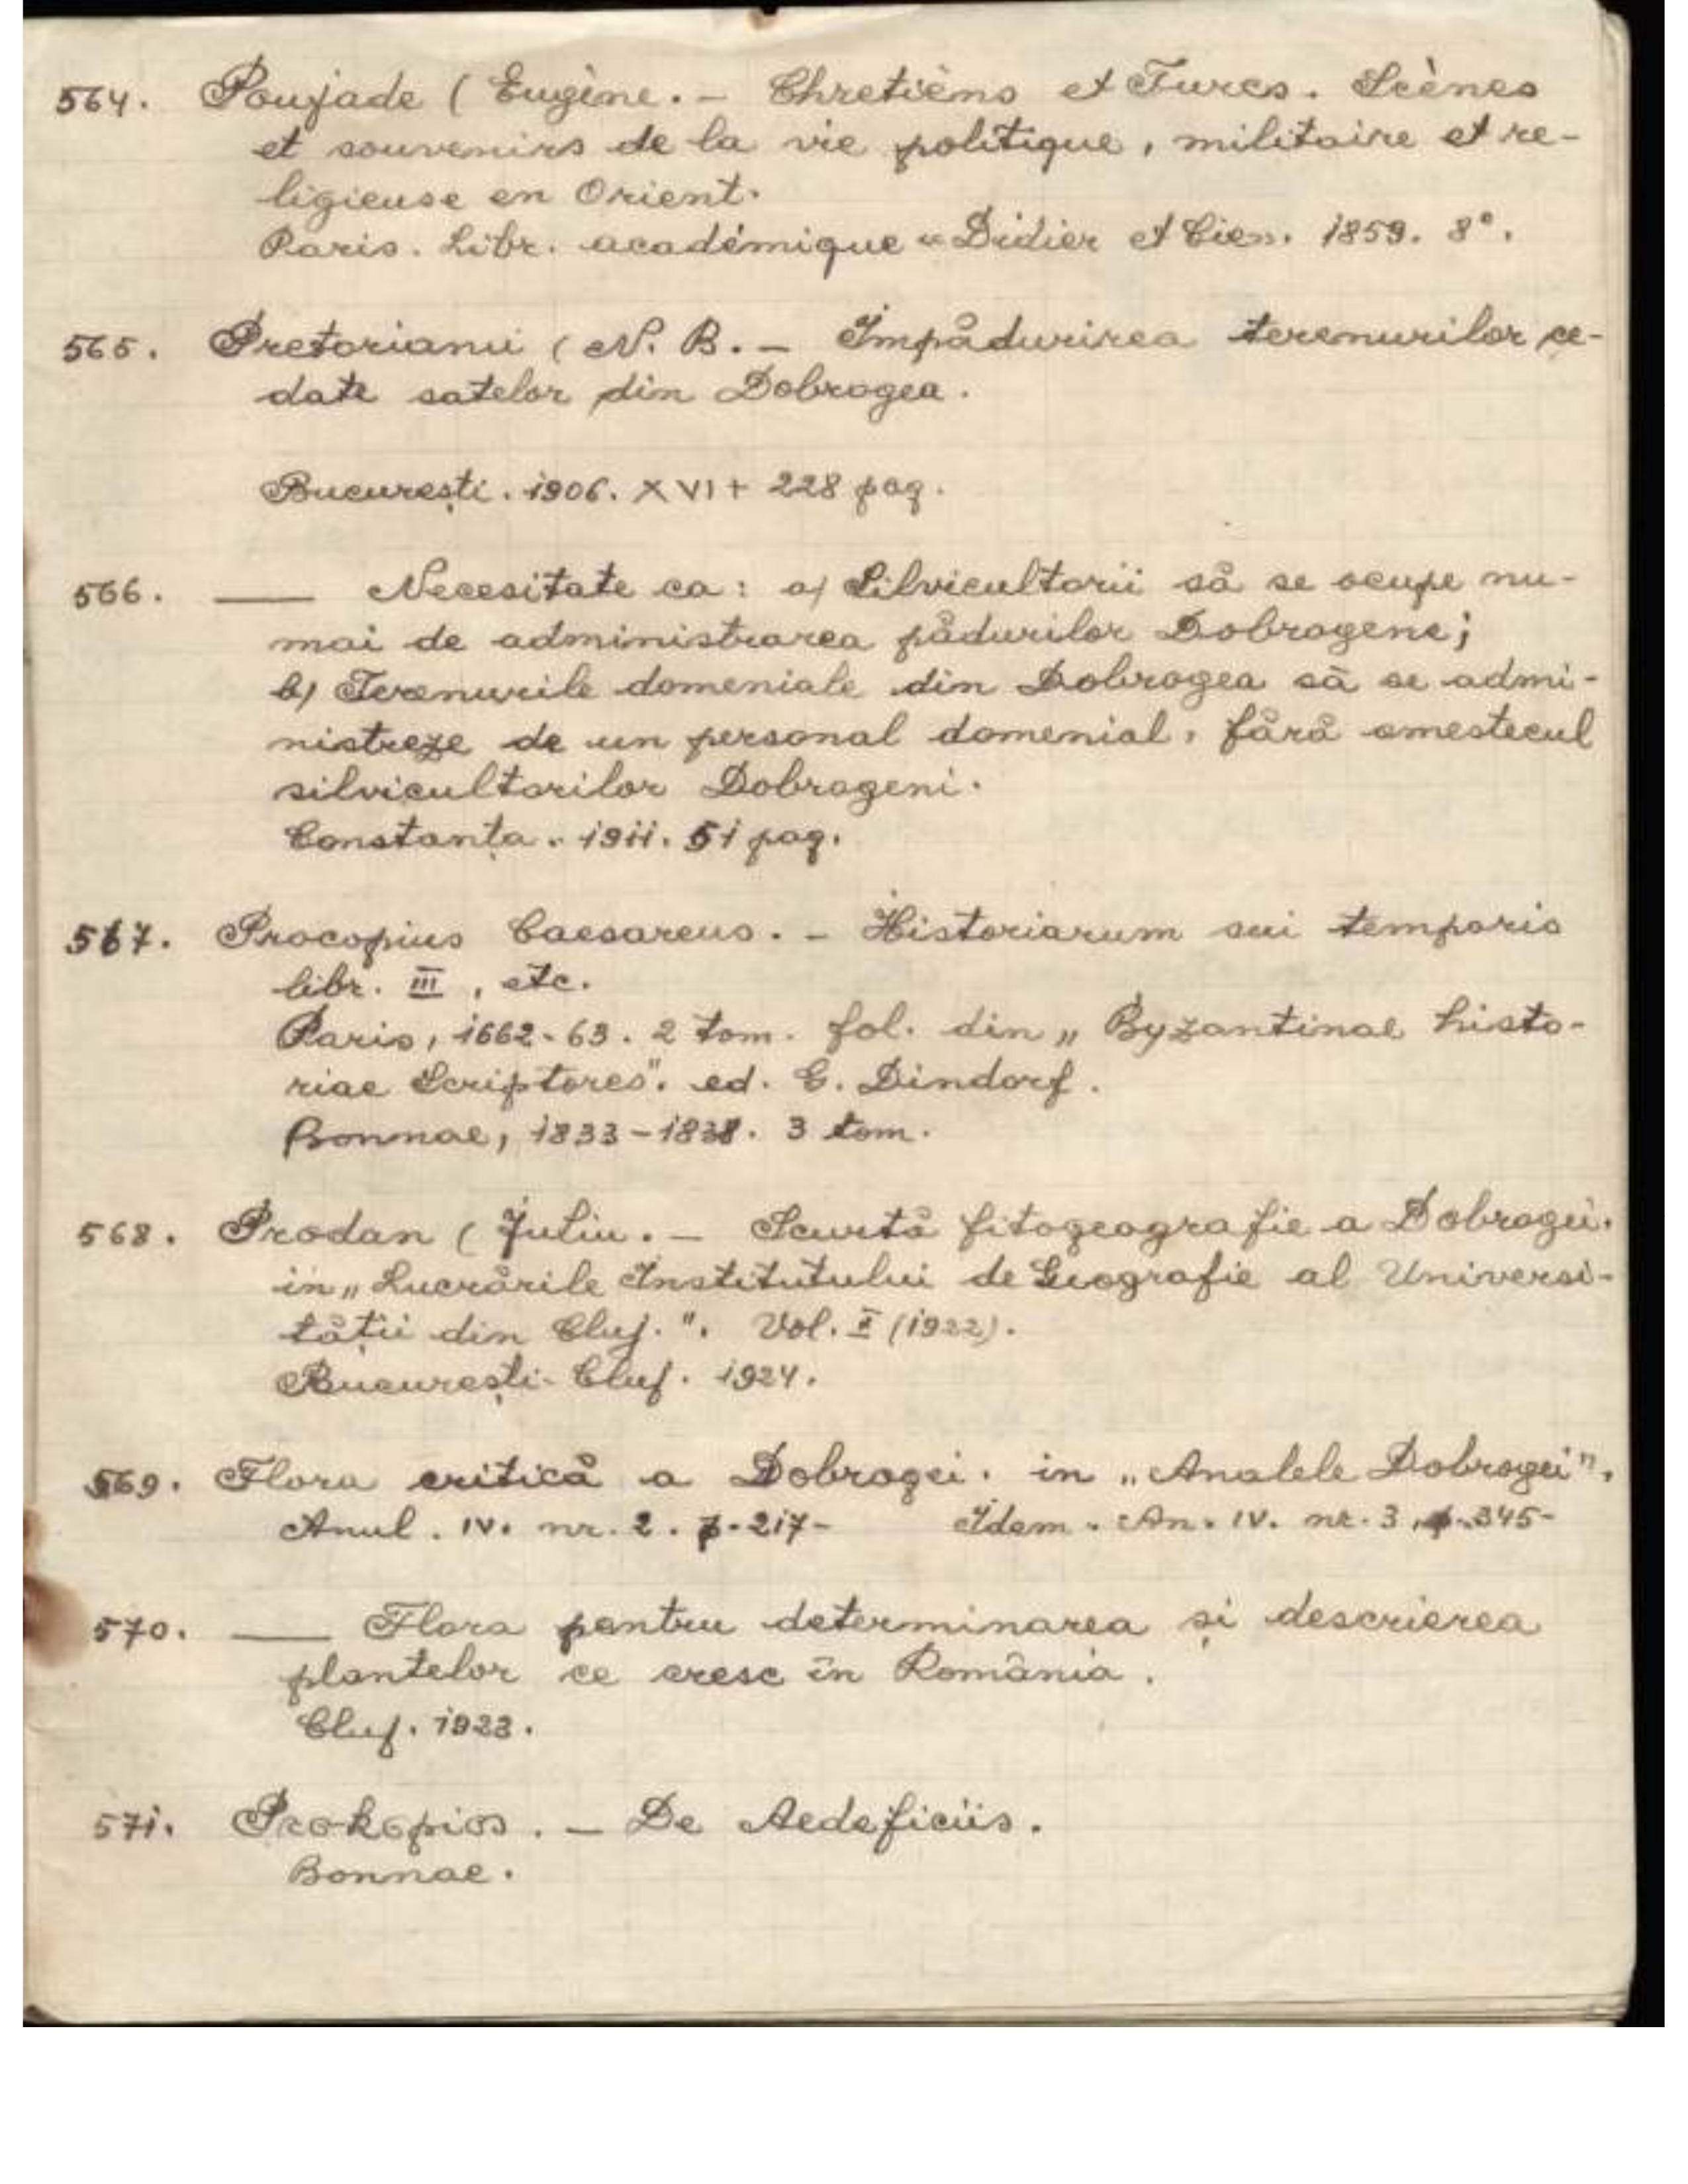 564. Poujade ( Eugène. - Chretièns et Turcs. Scènes
et souvenirs de la vie politique, militaire et re-
ligieuse en Orient.
Paris. Libr. académique "Didier et Cien. 1859. 8°.
565. Pretorianu ( N. B. - Împădurirea terenurilor ce-
date satelor din Dobrogea.
București. 1906. XVI + 228 pag.
566. — Necesitate ca: a) Silvicultorii să se ocupe nu-
mai de administrarea pădurilor Dobrogene;
b) Terenurile domeniale din Dobrogea să se admi-
nistreze de un personal domenial, fără amestecul
silvicultorilor Dobrogeni.
Constanța. 1911. 51 pag.
567. Procopius Caesareus. - Historiarum sui temporis
libr. III, etc.
Paris, 1662-63. 2 tom. fol. din „Byzantinae histo-
riae Scriptores". ed. G. Dindorf.
Bonnae, 1833-1838. 3 tom.
568. Prodan ( Juliu. - Scurtă fitogeografie a Dobrogei.
in „Lucrările Institutului de Geografie al Universi-
tății din Cluj.". Vol. I (1922).
București-Cluj. 1924.
569. Flora critică a Dobrogei. in „Analele Dobrogei".
Anul. IV. nr. 2. p. 217- Idem. An. IV. nr. 3, p. 345-
570. — Flora pentru determinarea și descrierea
plantelor ce cresc în România.
Cluj. 1923.
571. Prokopios. - De Aedeficiis.
Bonnae.